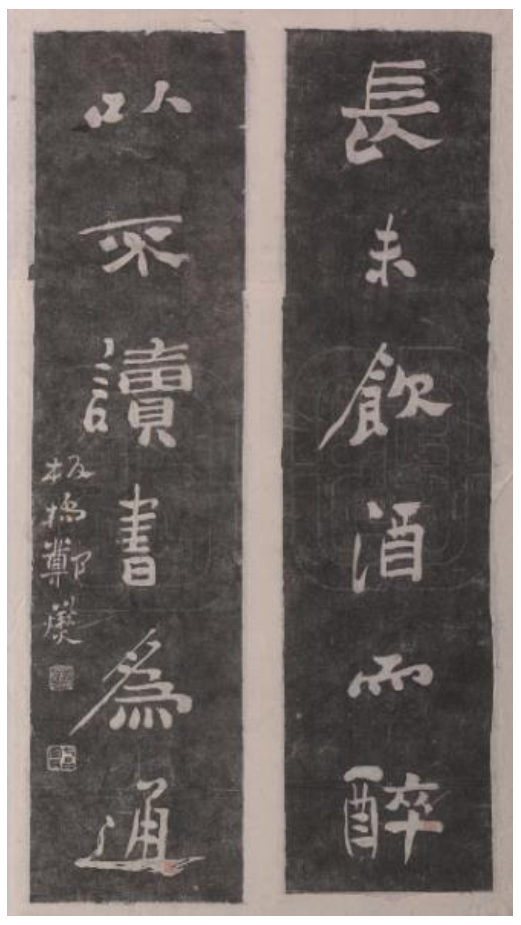 長未飲酒而醉
以不讀書為通
板橋鄭燮